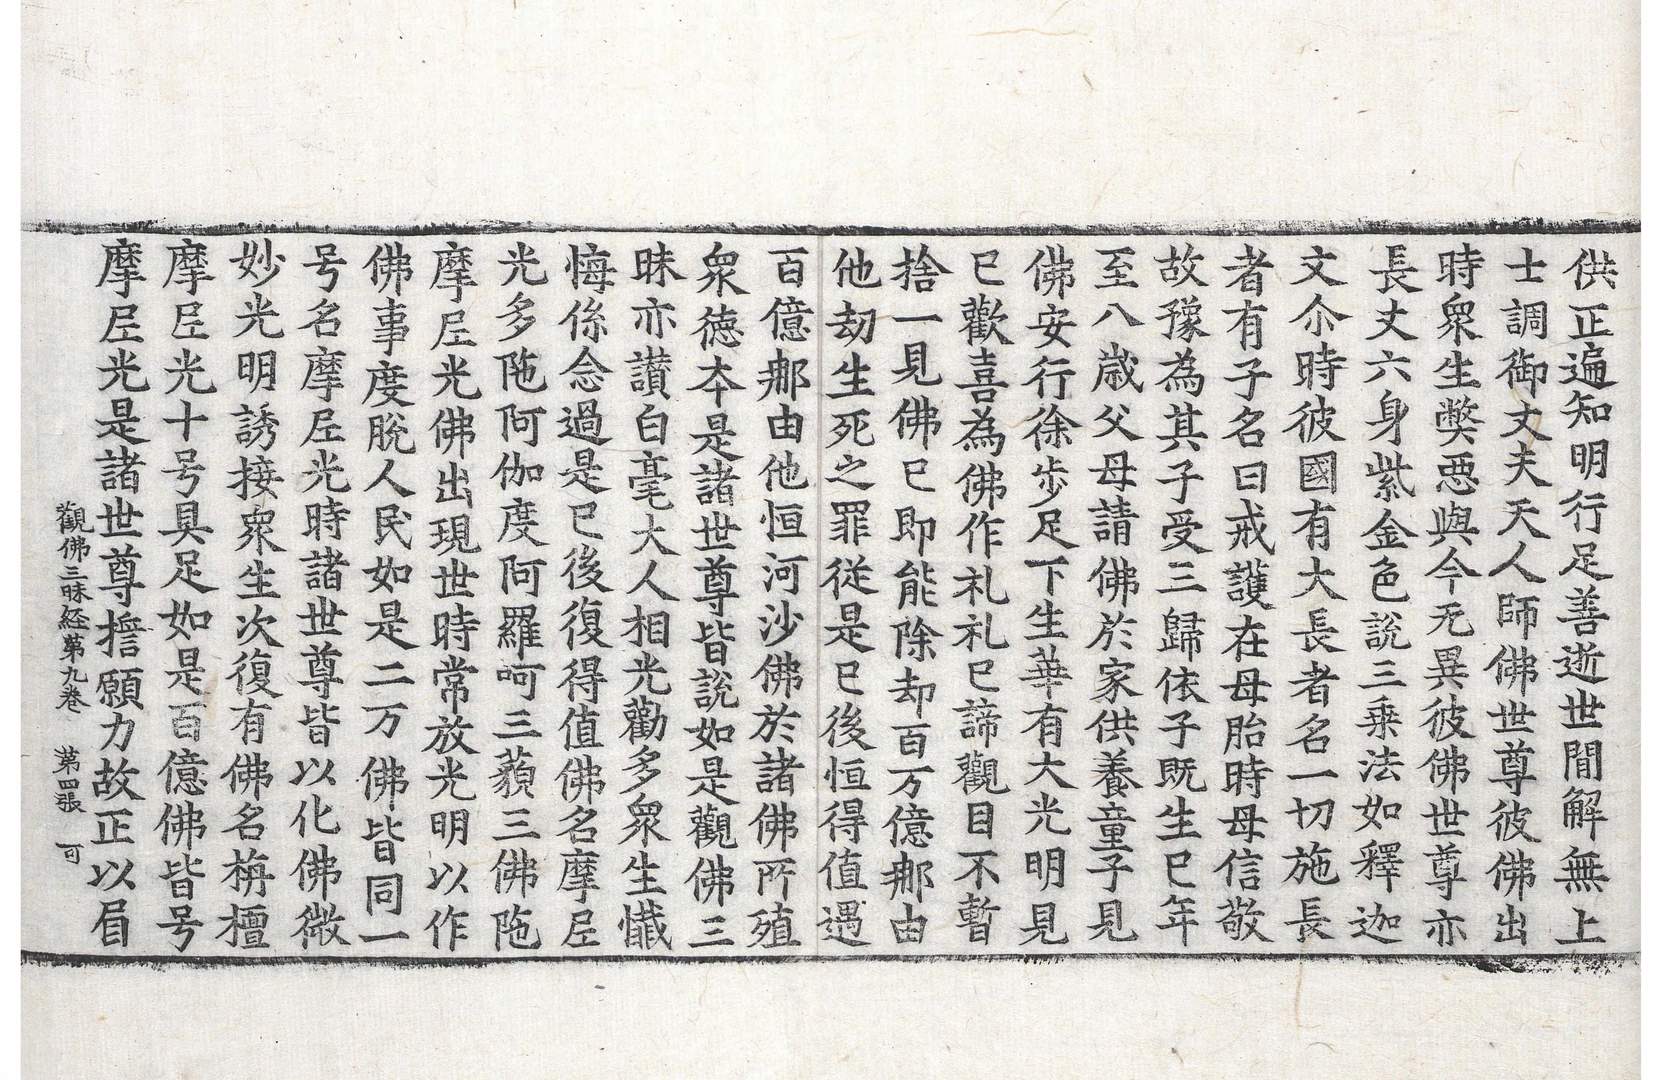 供正遍知明行足善逝世間解無上
士調御丈夫天人師佛世尊彼佛出
時衆生弊惡與今无異彼佛世尊亦
長丈六身紫金色說三乗法如釋迦
文尒時彼國有大長者名一切施長
者有子名曰戒護在母胎時母信敬
故豫為其子受三歸依子旣生已年
至八歲父母請佛於家供養童子見
佛安行徐步足下生華有大光明見
已歡喜為佛作礼礼已諦觀目不暫
捨一見佛已即能除却百万億那由
他劫生死之罪從是已後恒得值遇
百億那由他恒河沙佛於諸佛所殖
衆德本是諸世尊皆說如是觀佛三
昧亦讃白毫大人相光勸多衆生懺
悔係念過是已後復得值佛名摩𡰱
光多陁阿伽度阿羅呵三藐三佛陁
摩𡰱光佛出現世時常放光明以作
佛事度脫人民如是二万佛皆同一
号名摩𡰱光時諸世尊皆以化佛微
妙光明誘接衆生次復有佛名栴檀
摩𡰱光十号具足如是百億佛皆号
摩𡰱光是諸世尊誓願力故正以眉
觀佛三昧経第九卷　第四張　可